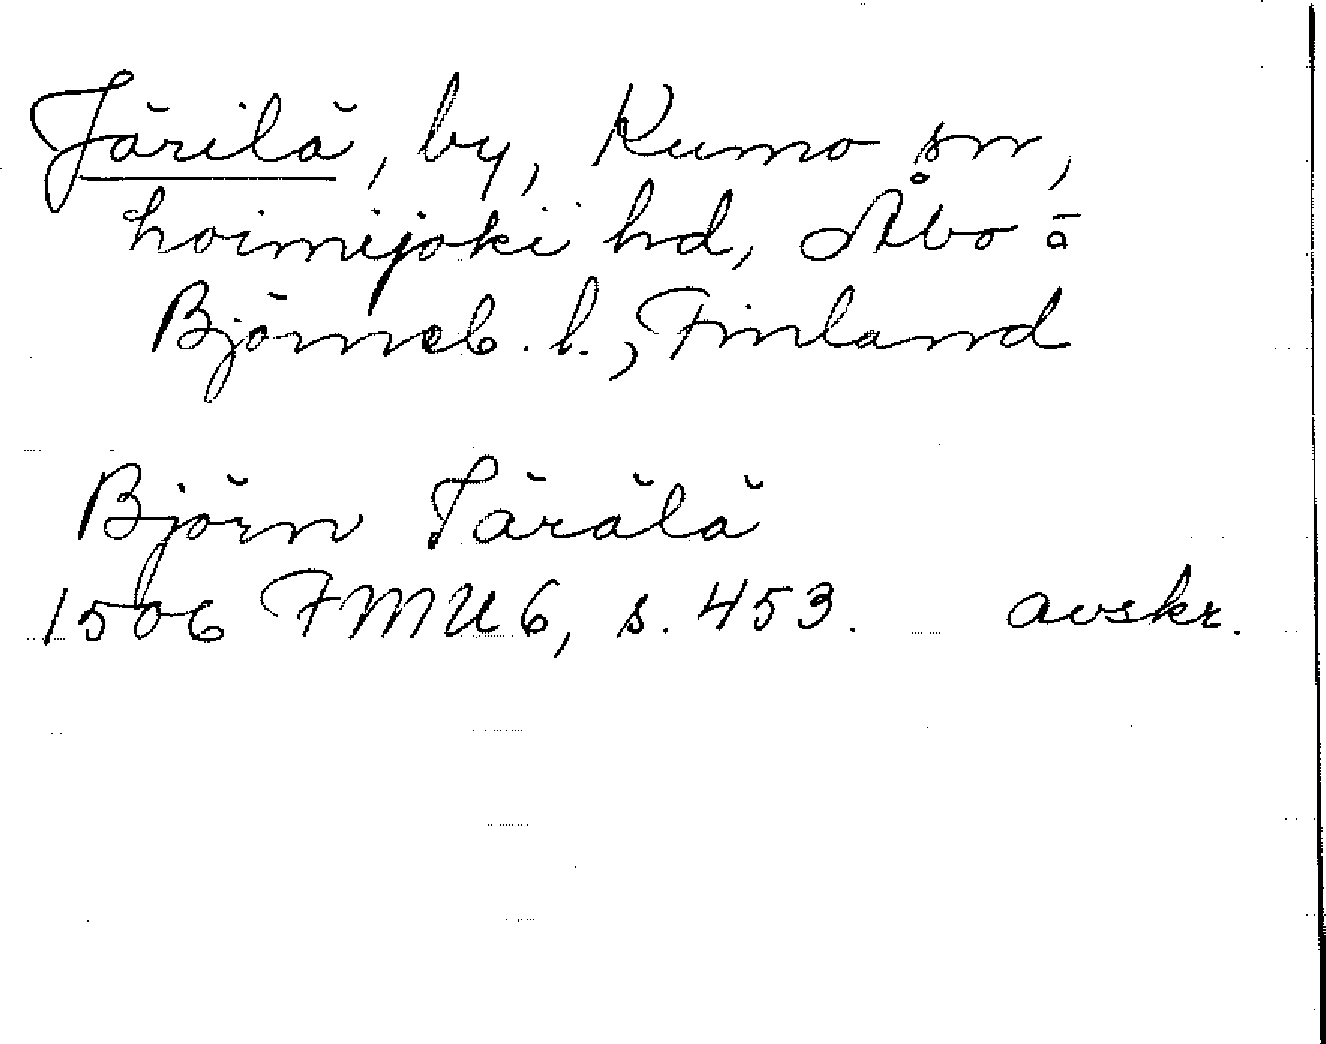 Järilä, by, Kumo sn,
hoimijoki hd, Åbo o
Björneb. l., Finland
Björn Järälä
1506 FMU 6, s. 453. avskr.